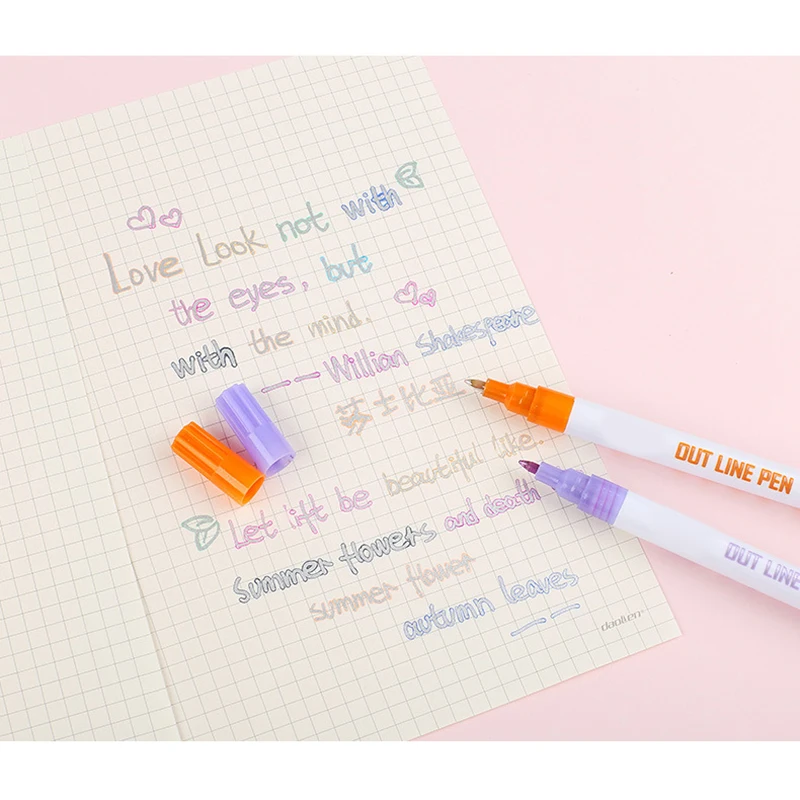 Love Look not with
the eyes, but
with the mind.
——Willian Shakespeare
莎士比亚
Let ift be beautiful like..
summer flowers and death
summer flower
autumn leaves
OUT LINE PEN
OUT LINE